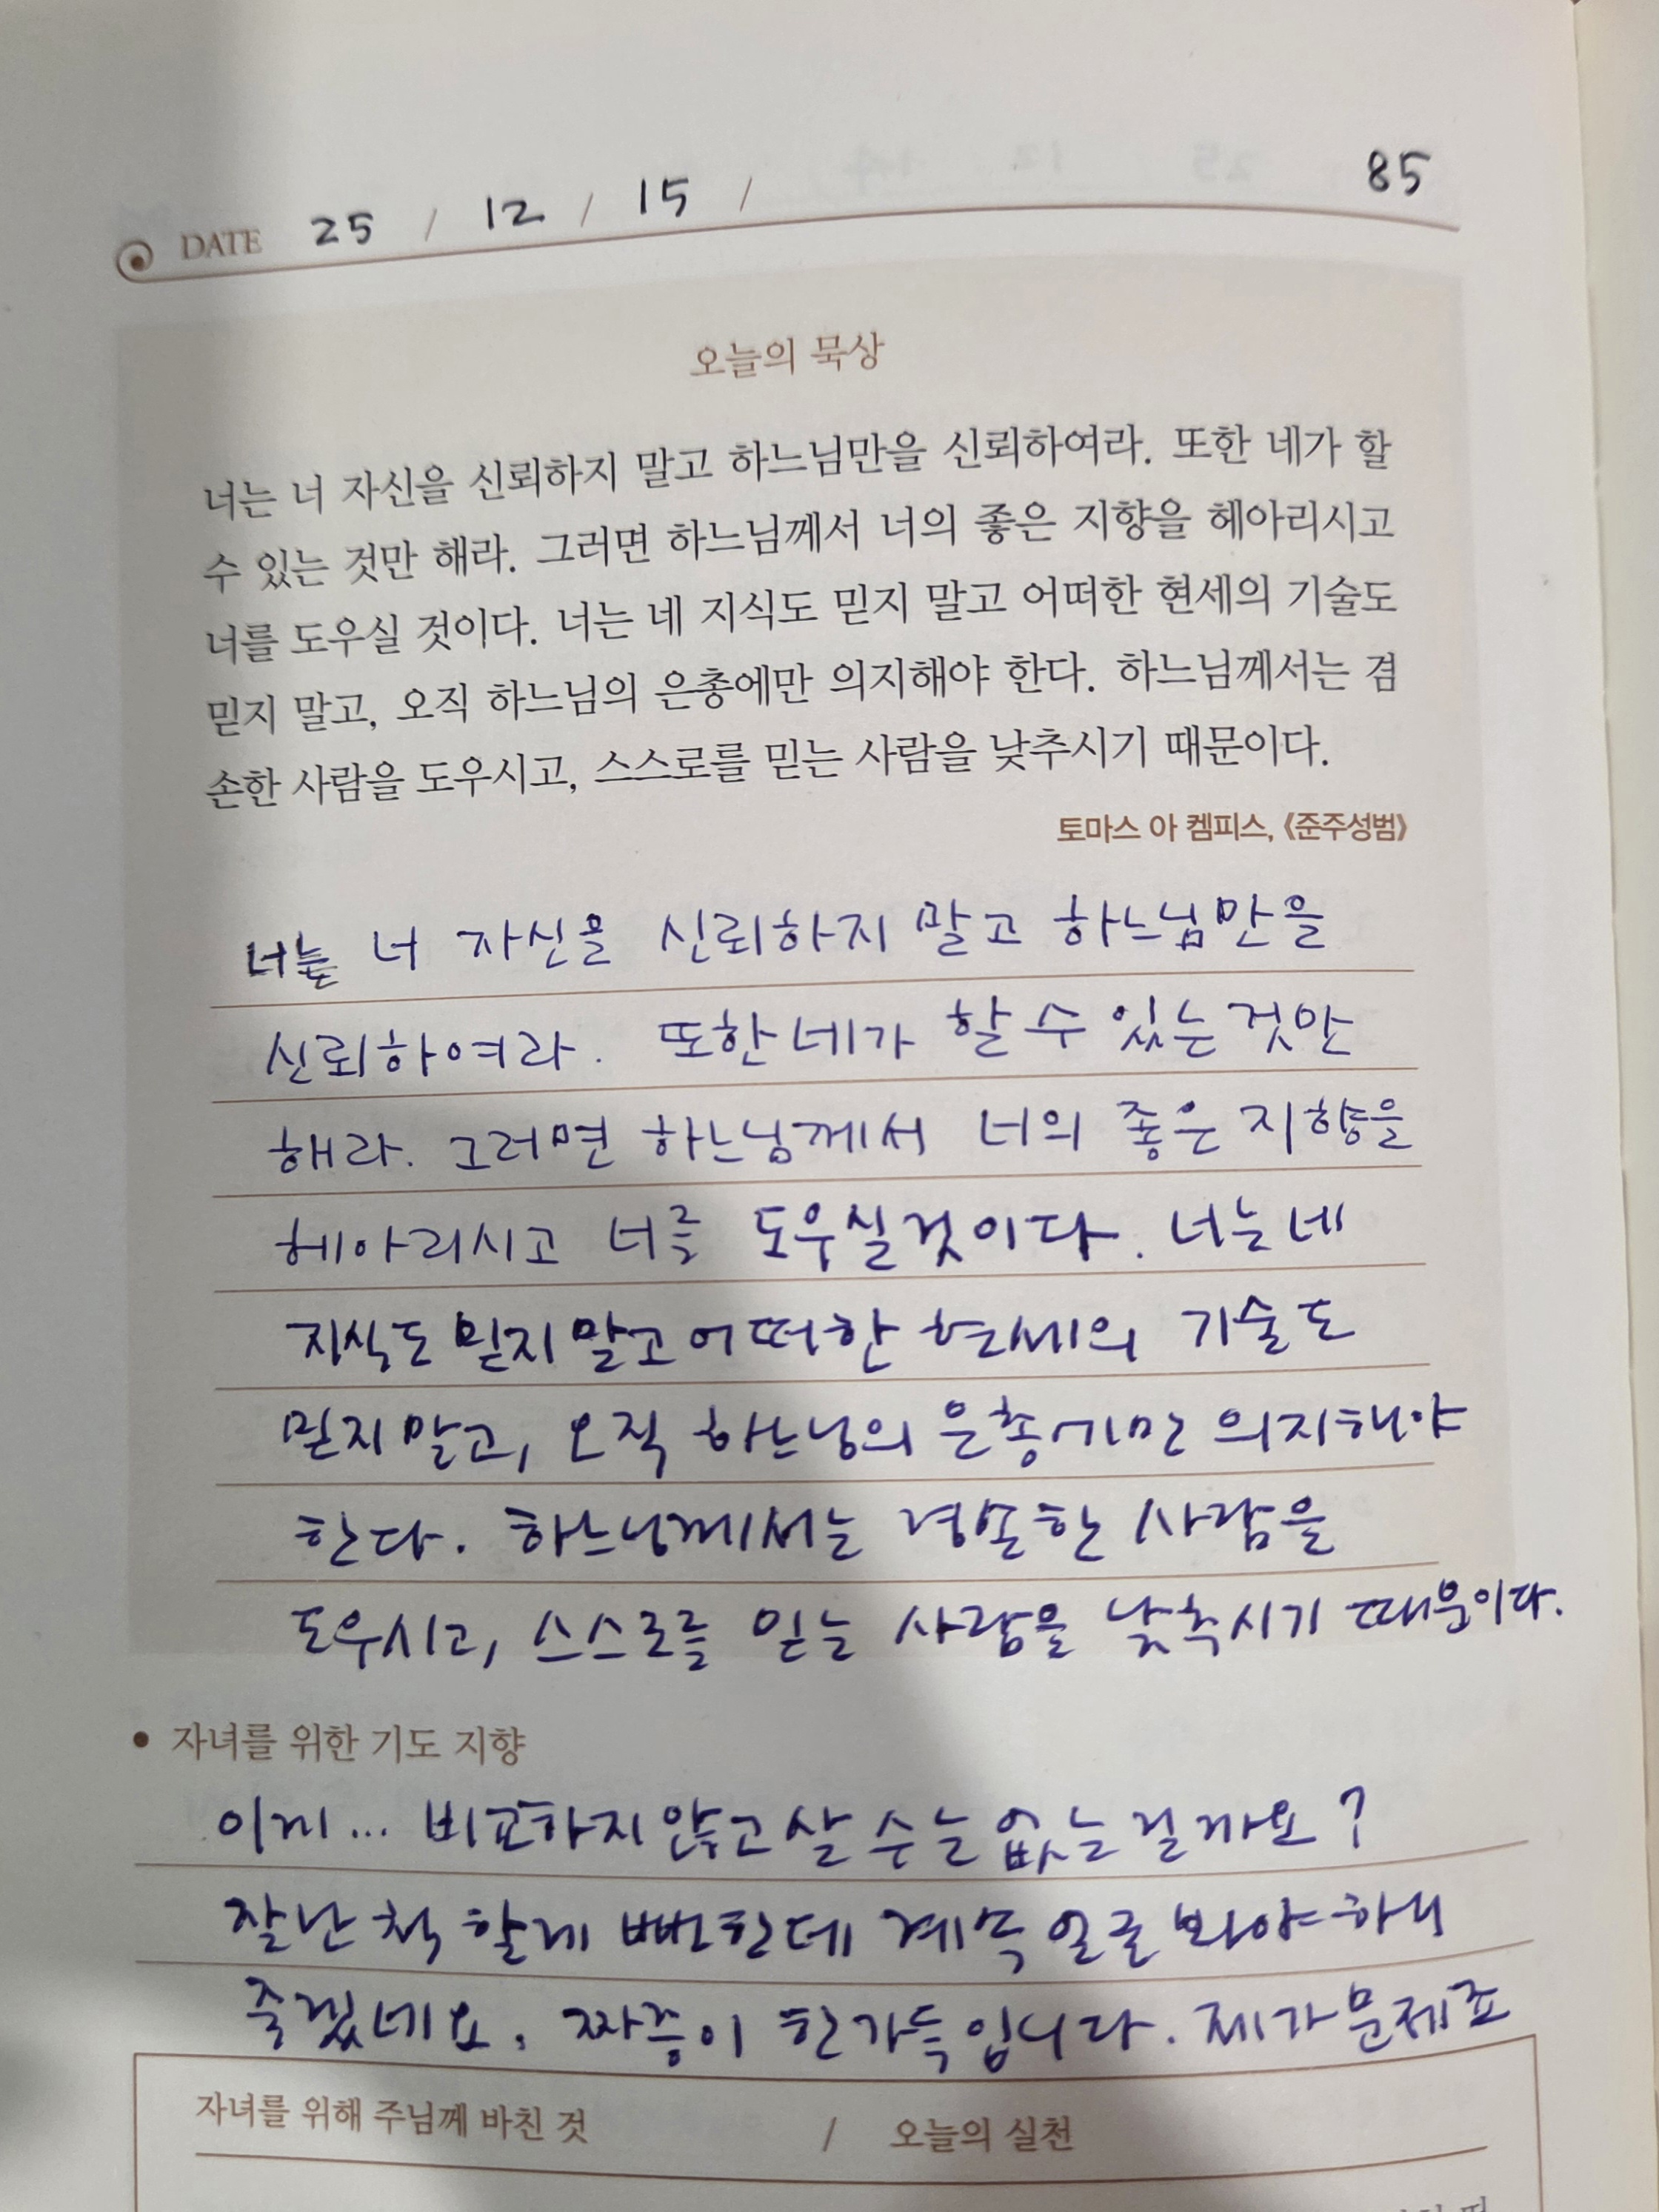 DATE 25 / 12 / 15 / 85
오늘의 묵상
너는 너 자신을 신뢰하지 말고 하느님만을 신뢰하여라. 또한 네가 할
수 있는 것만 해라. 그러면 하느님께서 너의 좋은 지향을 헤아리시고
너를 도우실 것이다. 너는 네 지식도 믿지 말고 어떠한 현세의 기술도
믿지 말고, 오직 하느님의 은총에만 의지해야 한다. 하느님께서는 겸
손한 사람을 도우시고, 스스로를 믿는 사람을 낮추시기 때문이다.
토마스 아 켐피스, 《준주성범》
너는 너 자신을 신뢰하지 말고 하느님만을
신뢰하여라. 또한 네가 할 수 있는 것만
해라. 그러면 하느님께서 너의 좋은 지향을
헤아리시고 너를 도우실 것이다. 너는 네
지식도 믿지 말고 어떠한 현세의 기술도
믿지 말고, 오직 하느님의 은총에만 의지해야
한다. 하느님께서는 겸손한 사람을
도우시고, 스스로를 믿는 사람을 낮추시기 때문이다.
• 자녀를 위한 기도 지향
이게... 비교하지 않고 살 수는 없는 걸까요?
잘난 척 할게 뻔한데 계속 얼굴 봐야 하니
죽겠네요. 짜증이 한가득입니다. 제가 문제죠
자녀를 위해 주님께 바친 것 / 오늘의 실천